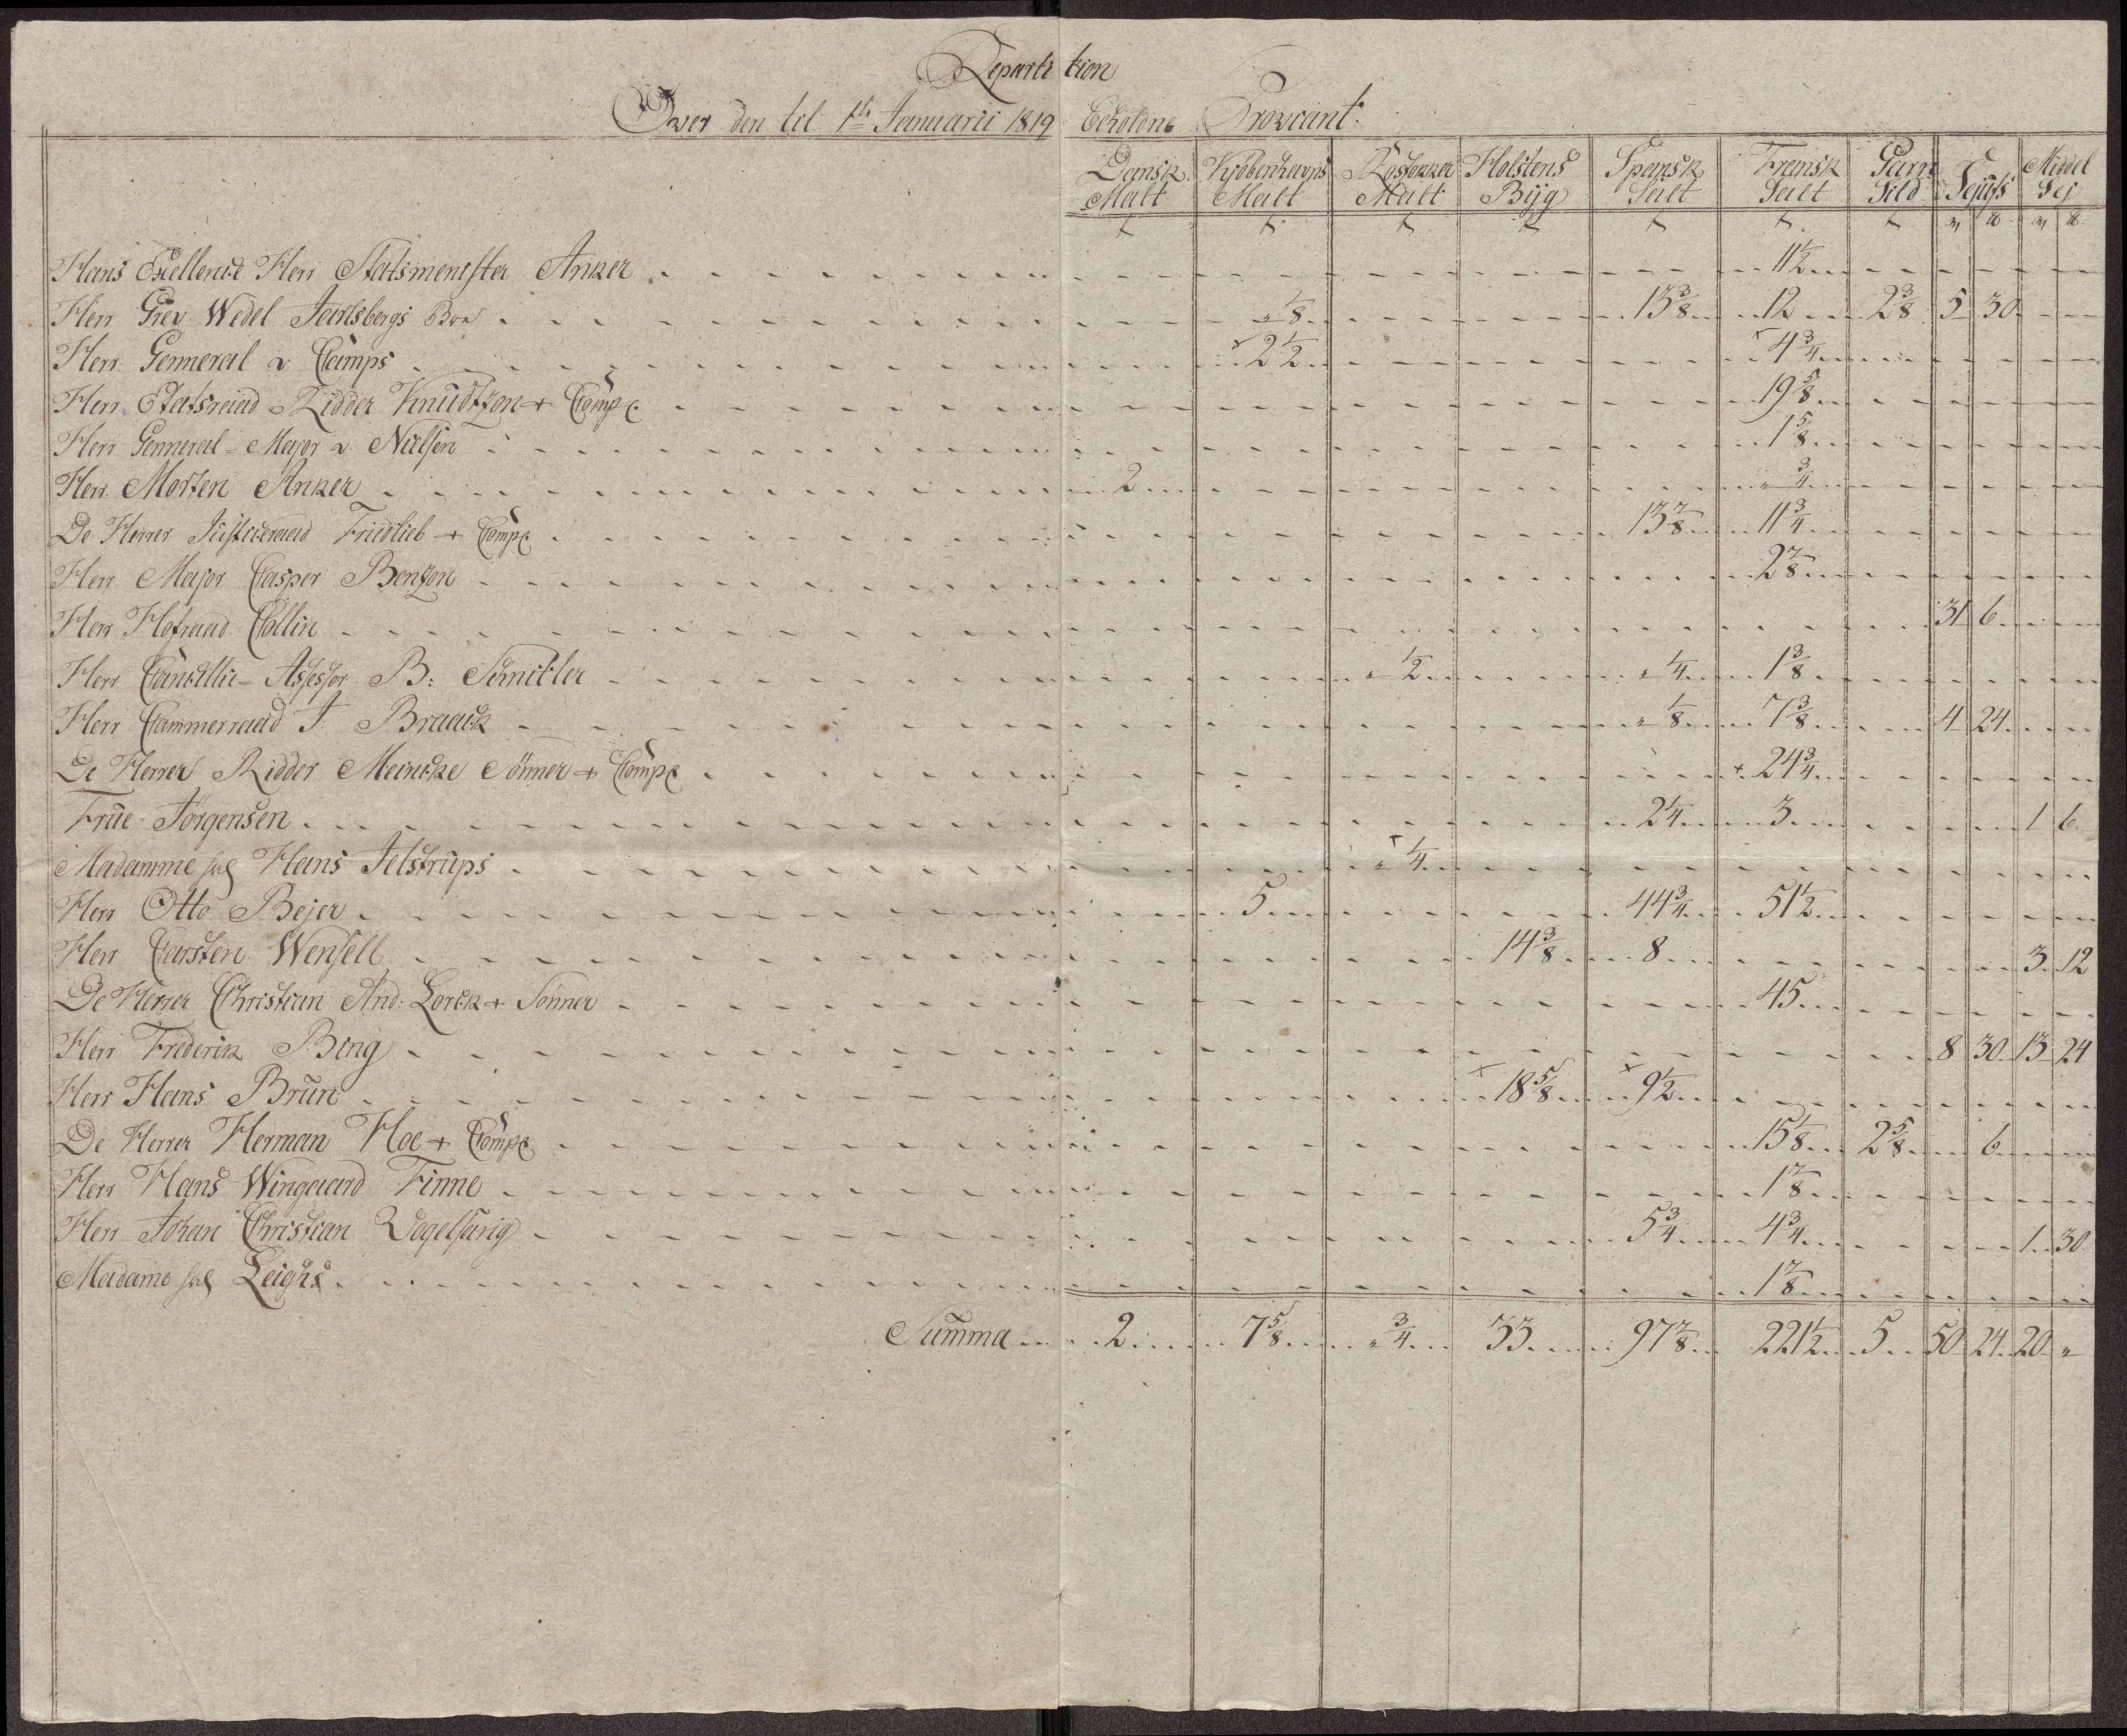 Repartition
Over den til 1ste Januarii 1819 Beholdne Proviant:
Dansk Malt Kjöbenhavns Malt Rostokker Malt Holstens Byg Spansk Salt Fransk Salt Garn Sild Sejufs Middel Sej
Hans Exellence Herr Statsmenister Anker 11 1/2
Herr Grev Wedel Jarlsbergs Boe " 1/8 13 3/8 12 2 3/8 5 30
Herr Genneral v Camps × 2 1/2 × 4 3/4
Herr Etatsraad Ridder Knudtzon + Comp 19 5/8
Herr Genneral-Major v Nielsen 1 5/8
Herr Morten Anker 2 " 3/4
De Herrer Justiceraad Friedlieb + Comp 13 7/8 11 3/4
Herr Major Casper Bentzon 2 7/8
Herr Hofraad Collin 31 6
Herr Cancellie-Assessor B: Schnitler " 1/2 " 1/4 1 3/8
Herr Cammerraad J: Braack " 1/8 7 3/8 4 24
De Herrer Ridder Meincke Sönner + Comp × 24 3/4
Frue Jörgensen 2 1/4 3 1 6
Madamme sal Hans Jelstrups × " 1/4
Herr Otto Bejer 5 44 3/4 51 1/2
Herr Carsten Wensell 14 3/8 8 3 12
De Herrer Christian And: Lorck + Sönner 45
Herr Frederik Bing 8 30 13 24
Herr Hans Brun × 18 5/8 × 9 1/2
De Herrer Herman Hoe + Comp 15 1/8 2 5/8 6
Herr Hans Wingaard Finne 1 7/8
Herr Johan Christian Vogelsang 5 3/4 4 3/4 1 30
Madame sal Leighs 1 7/8
Summa 2 7 5/8 " 3/4 33 97 7/8 221 1/2 5 50 24 20 "